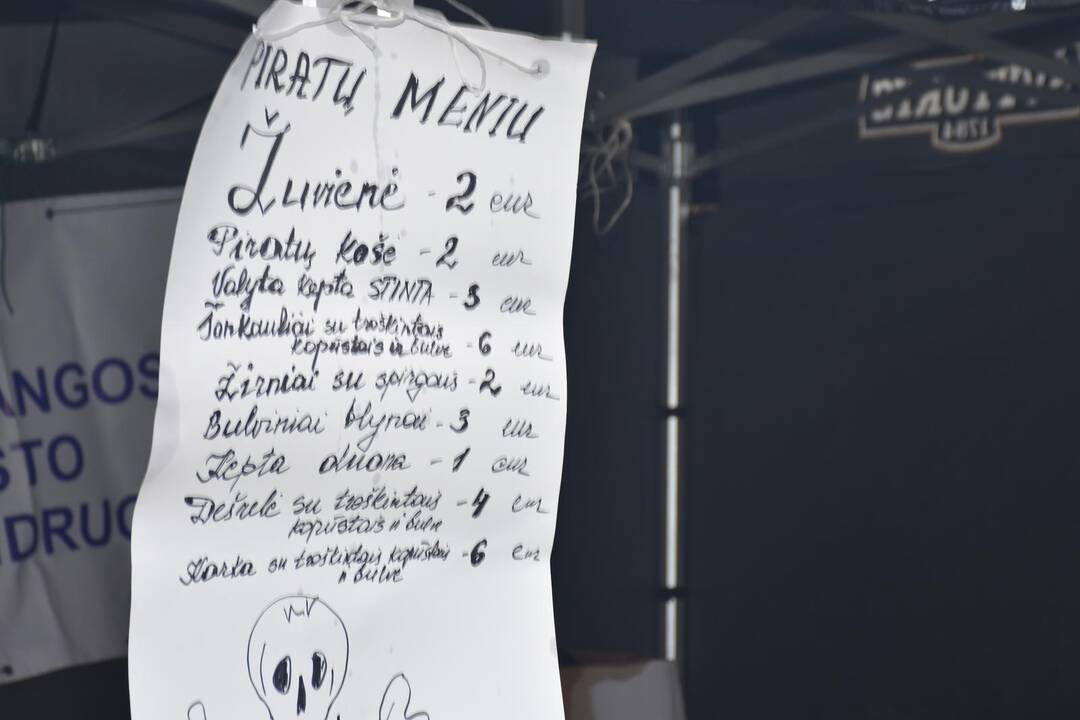 PIRATŲ MENIU
Žuvienė - 2 eur
Piratų košė - 2 eur
Valyta kepta STINTA - 3 eur
Šonkauliai su troškintais
kopūstais ir bulve - 6 eur
Žirniai su spirgais - 2 eur
Bulviniai blynai - 3 eur
Kepta duona - 1 eur
Dešrelė su troškintais - 4 eur
kopūstais ir bulve
Karka su troškintais kopūstais - 6 eur
ir bulve
ANGOS
STO